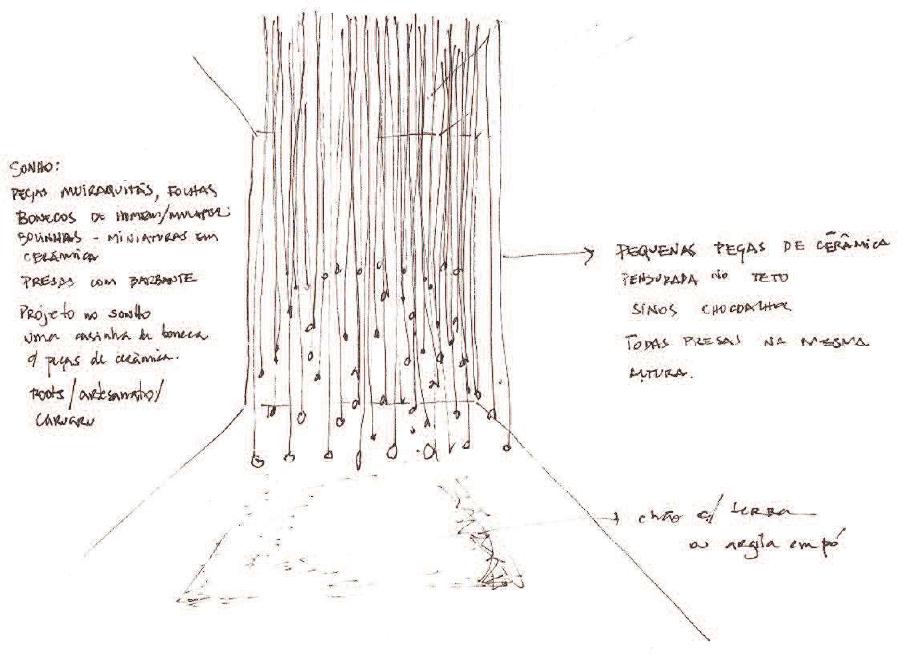 SONHO:
PEÇAS MUIRAQUITÃS, FOLHAS
BONECOS DE HOMEM/MULHER
BOLINHAS - MINIATURAS EM
CERÂMICA
PRESAS COM BARBANTE
PROJETO NO SONHO
uma casinha de boneca
c/ peças de cerâmica.
ROOTS/artesanato/
CARUARU
PEQUENAS PEÇAS DE CERÂMICA
PENDURADA NO TETO
SINOS CHOCOALHO
TODAS PRESAS NA MESMA
ALTURA.
chão c/ terra
ou argila em pó